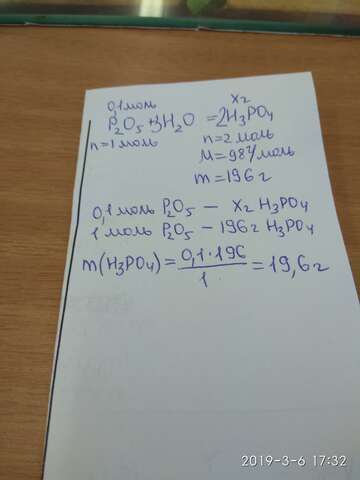 0,1 моль x г
P₂O₅ + 3H₂O = 2H₃PO₄
n = 1 моль n = 2 моль
M = 98 г/моль
m = 196 г
0,1 моль P₂O₅ — x г H₃PO₄
1 моль P₂O₅ — 196 г H₃PO₄
m(H₃PO₄) = 0,1·196 / 1 = 19,6 г
2019-3-6 17:32